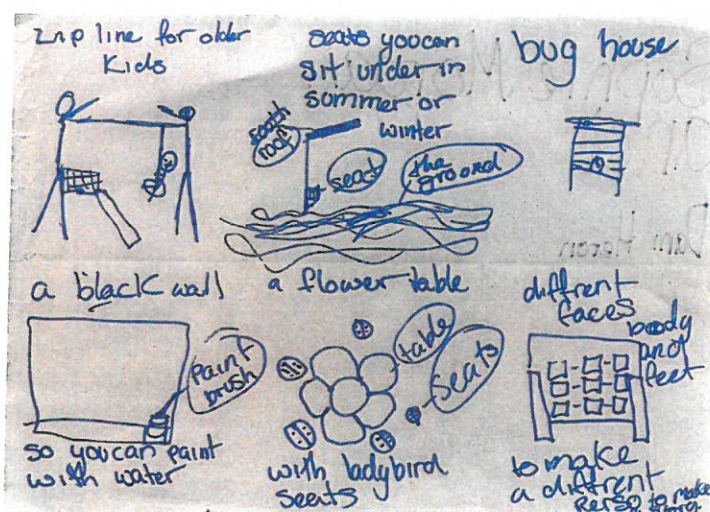 zip line for older
kids
seats you can
sit under in
sommer or
winter
bug house
roof
seat
the
groond
a black wall
a flower table
diffrent
faces
boody
and
feet
paint
brush
table
seats
so you can paint
with water
with ladybird
seats
to make
a diffrent
perso to make